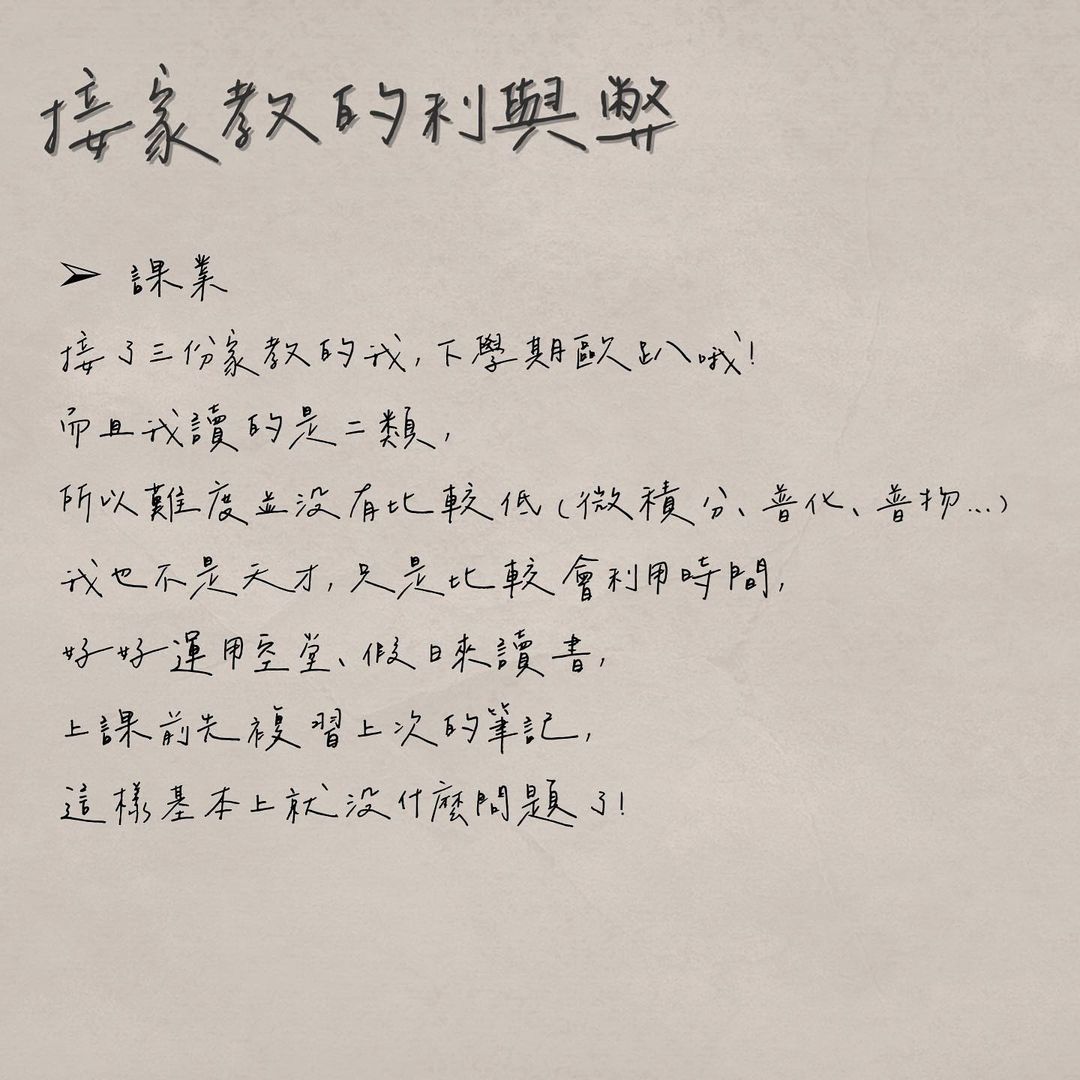 接家教的利與弊
➢ 課業
接了三份家教的我,下學期歐趴哦!
而且我讀的是二類,
所以難度並沒有比較低(微積分、普化、普物...)
我也不是天才,只是比較會利用時間,
好好運用空堂、假日來讀書,
上課前先複習上次的筆記,
這樣基本上就沒什麼問題了!